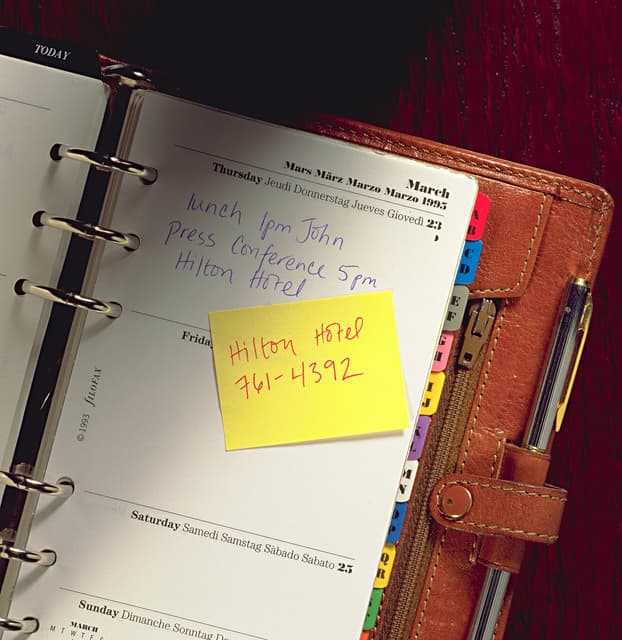 TODAY
March
Mars März Marzo Marzo 1995
Thursday Jeudi Donnerstag Jueves Giovedì 23
lunch 1pm John
Press Conference 5pm
Hilton Hotel
Friday
Hilton Hotel
761-4392
© 1993 fILOFAX
Saturday Samedi Samstag Sàbado Sabato 25
Sunday Dimanche Sonntag
MARCH
M T W T F
A
B
C
D
E
F
G
H
I
J
K
L
M
N
O
P
Q
R